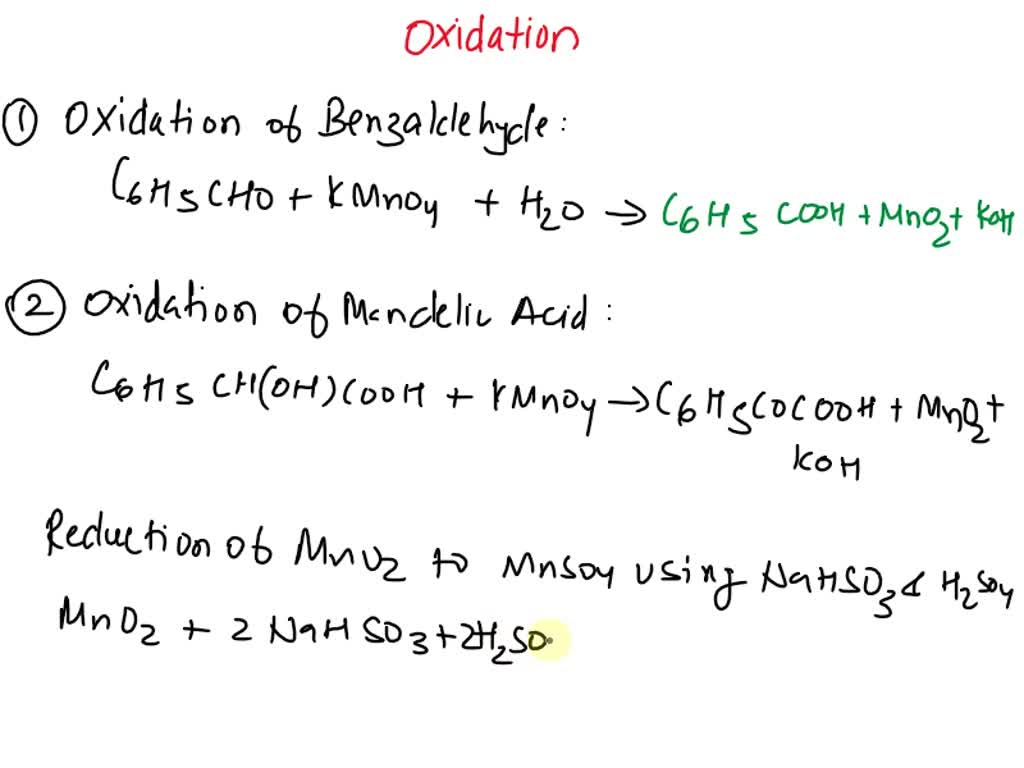 Oxidation
① Oxidation of Benzaldehyde:
C6H5CHO + KMnO4 + H2O → C6H5COOH + MnO2 + KOH
② Oxidation of Mandelic Acid:
C6H5CH(OH)COOH + KMnO4 → C6H5COCOOH + MnO2 +
KOH
Reduction of MnO2 to MnSO4 using NaHSO3 & H2SO4
MnO2 + 2 NaHSO3 + 2H2SO